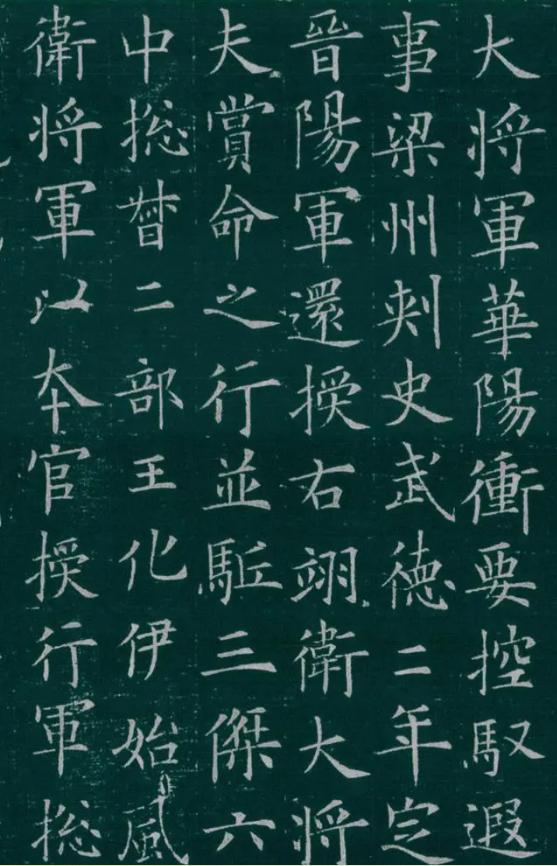 大将軍華陽衝要控馭遐
事梁州刾史武徳二年定
晋陽軍還授右翊衛大将
夫賞命之行並駈三傑六
中揔督二部王化伊始風
衛将軍以夲官授行軍揔